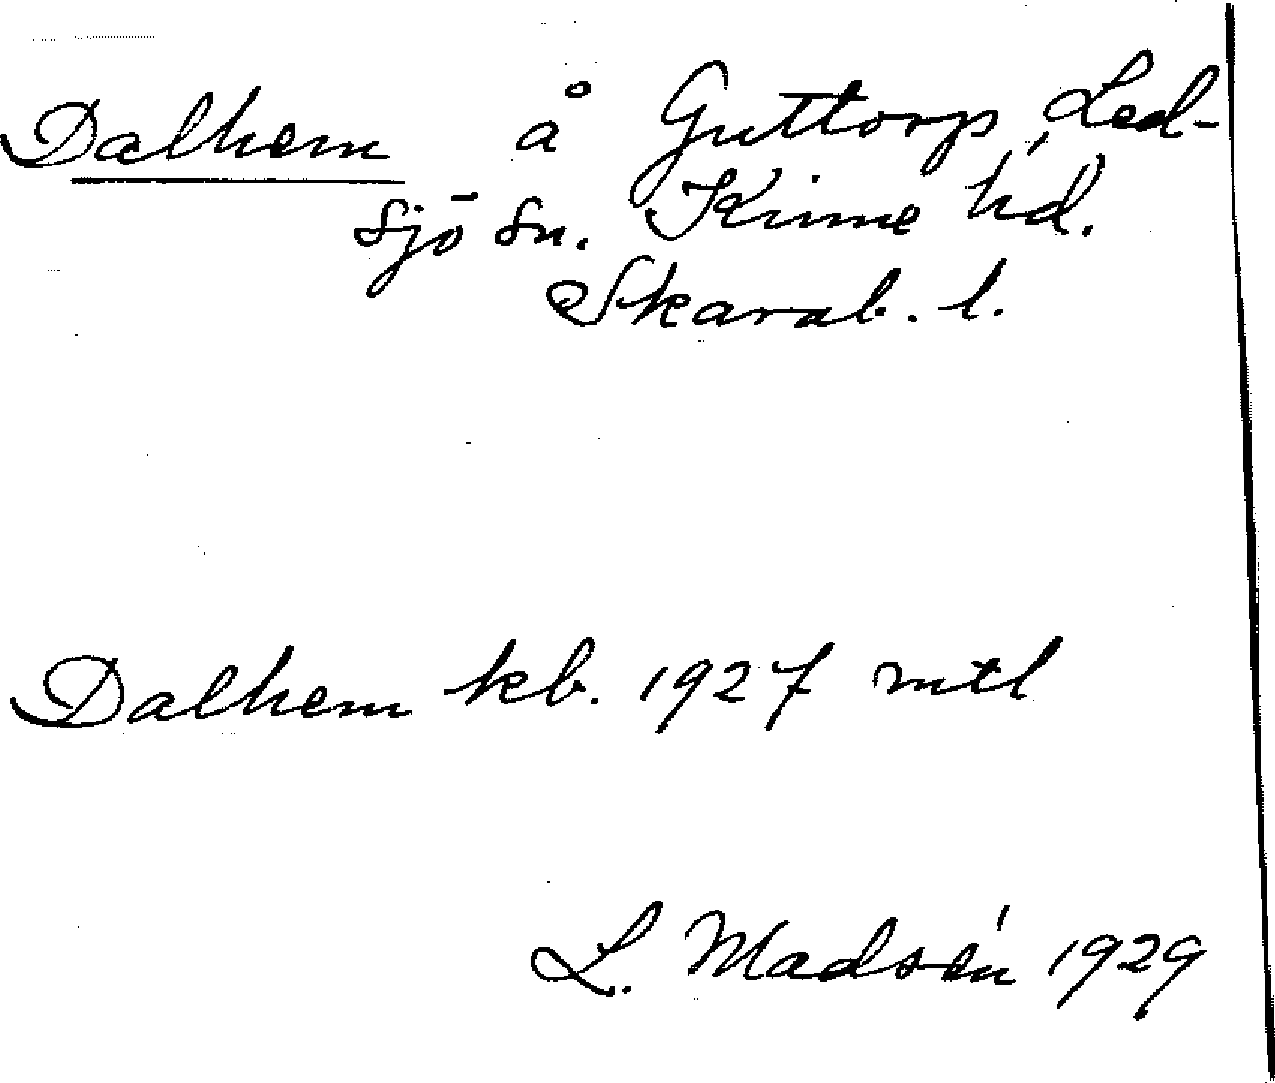 Dalhem å Guttorp, Led-
sjö sn. Kinne hd.
Skarab. l.
Dalhem kb. 1927 mtl
L. Madsén 1929